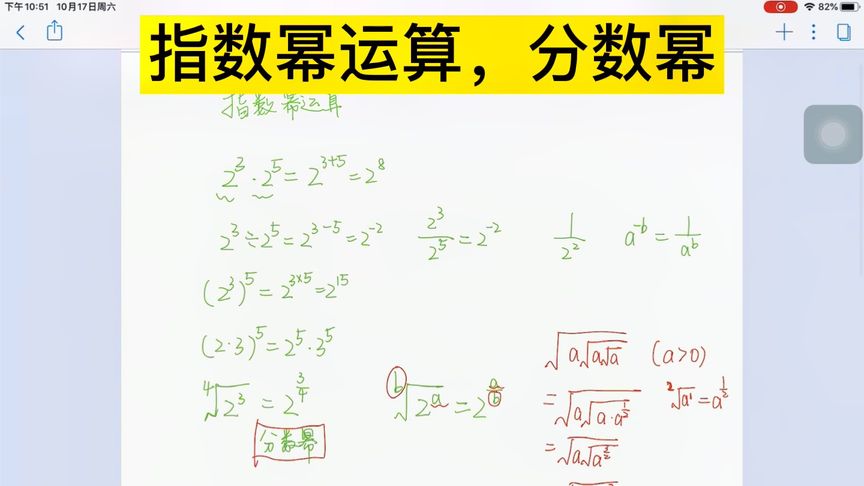 下午10:51 10月17日周六 82%
指数幂运算，分数幂
指数幂运算
2³·2⁵=2³⁺⁵=2⁸
2³÷2⁵=2³⁻⁵=2⁻² 2³/2⁵=2⁻² 1/2² a⁻ᵇ=1/aᵇ
(2³)⁵=2³ˣ⁵=2¹⁵
(2·3)⁵=2⁵·3⁵
√(a√(a√a)) (a>0)
⁴√(2³)=2^(3/4) ᵇ√(2ᵃ)=2^(a/b) =√(a√(a·a^(1/2))) ²√(a¹)=a^(1/2)
分数幂 =√(a√(a^(3/2)))